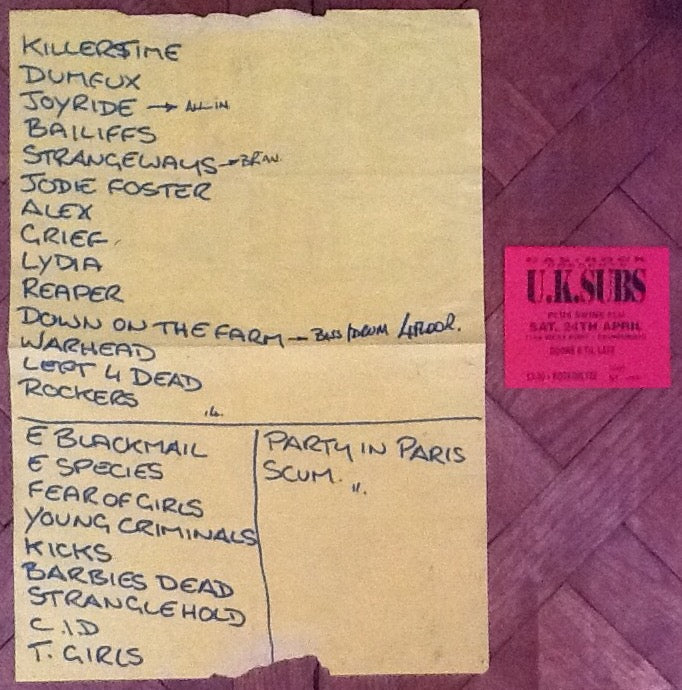 KILLER$TIME
DUMFUX
JOYRIDE → ALL IN
BAILIFFS
STRANGEWAYS →
JODIE FOSTER
ALEX
GRIEF
LYDIA
REAPER
DOWN ON THE FARM → BASS/DRUM 4FLOOR.
WARHEAD
LEFT 4 DEAD
ROCKERS
14.
E BLACKMAIL
E SPECIES
FEAR OF GIRLS
YOUNG CRIMINALS
KICKS
BARBIES DEAD
STRANGLEHOLD
C.I.D
T. GIRLS
PARTY IN PARIS
SCUM.
11.
U.K.SUBS
PLUS
SAT. 24TH APRIL
DOORS 8 TIL LATE